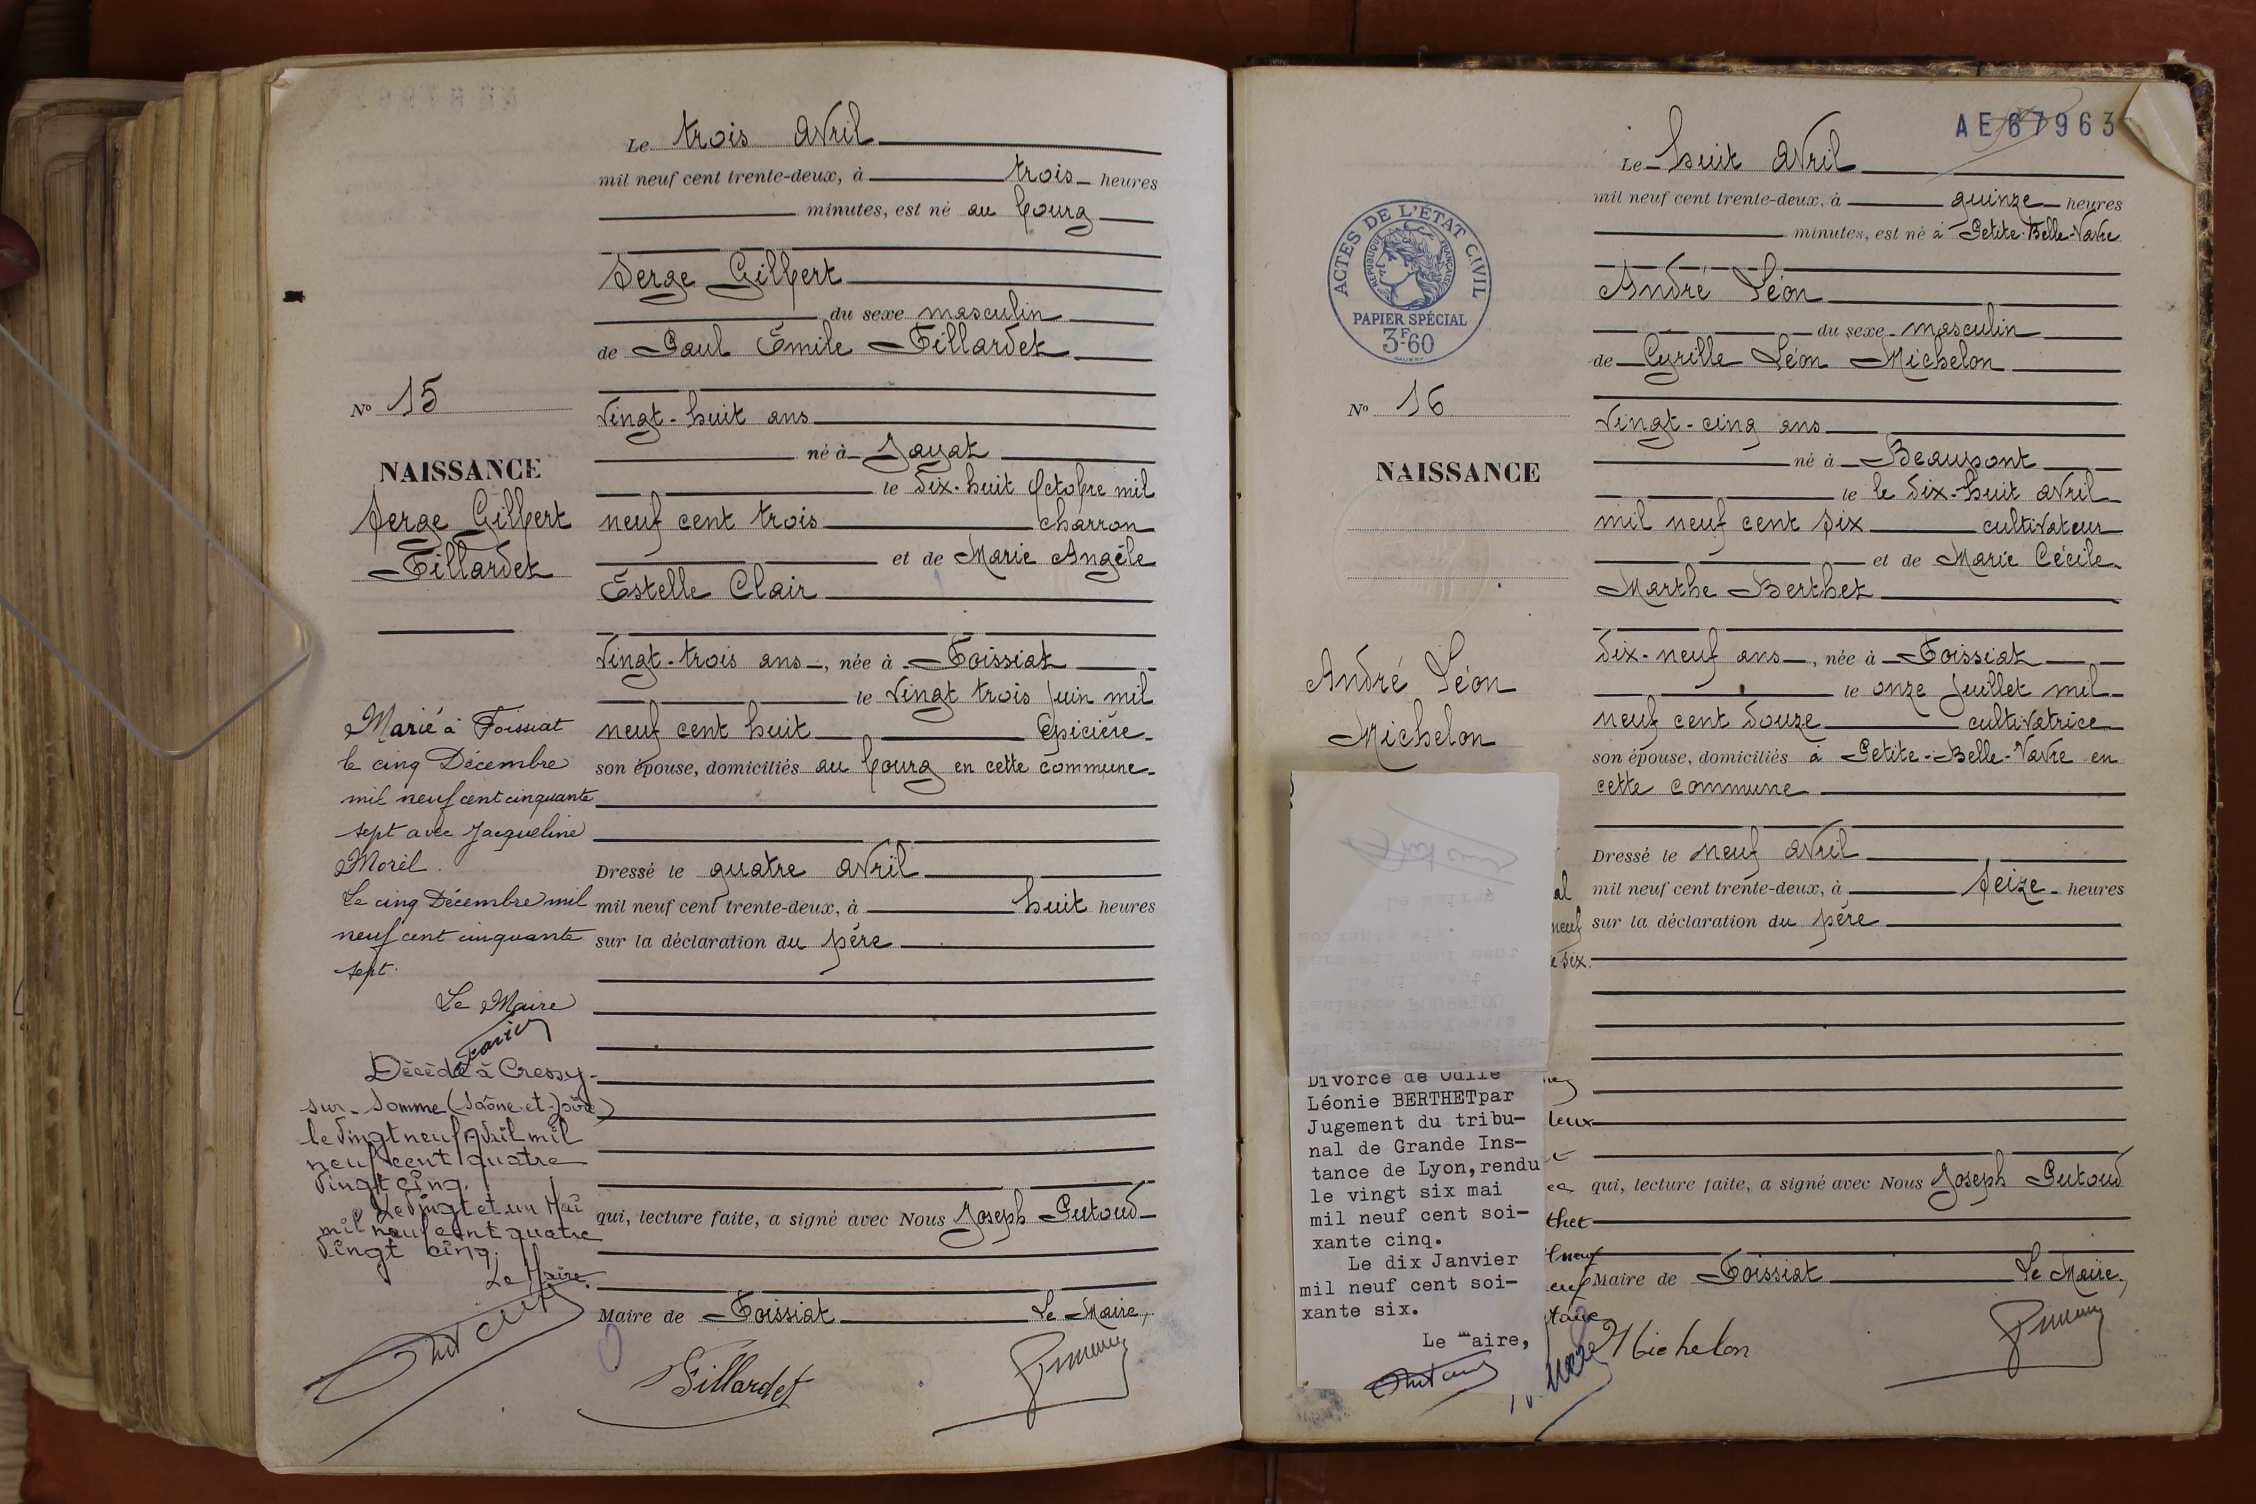 Le trois avril
mil neuf cent trente-deux, à trois heures
minutes, est né au bourg
Serge Gilbert
du sexe masculin
de Paul Emile Fillardet
Nº 15
vingt-huit ans
né à Jayat
NAISSANCE
le dix-huit octobre mil
Serge Gilbert
Fillardet
neuf cent trois charron
et de Marie Angèle
Estelle Clair
vingt-trois ans, née à Foissiat
le vingt trois juin mil
neuf cent huit épicière
son épouse, domiciliés au bourg en cette commune
Marié à Foissiat
le cinq Décembre
mil neuf cent cinquante
sept avec Jacqueline
Morel.
Le cinq Décembre mil
neuf cent cinquante
sept.
Le Maire
Dressé le quatre avril
mil neuf cent trente-deux, à huit heures
sur la déclaration du père
Décédé à Cressy-
sur-Somme (Saône-et-Loire)
le vingt neuf Avril mil
neuf cent quatre
vingt cinq.
Le vingt et un Mai
mil neuf cent quatre
vingt cinq.
Le Maire.
qui, lecture faite, a signé avec Nous Joseph Putoud
Maire de Foissiat Le Maire,
Fillardet
AE 67963
Le huit avril
mil neuf cent trente-deux, à quinze heures
minutes, est né à Petite-Belle-Vavre
ACTES DE L'ÉTAT CIVIL
RÉPUBLIQUE FRANÇAISE
PAPIER SPÉCIAL
3F60
André Léon
du sexe masculin
de Cyrille Léon Michelon
Nº 16
vingt-cinq ans
né à Beaupont
NAISSANCE
le le dix-huit avril
mil neuf cent six cultivateur
et de Marie Cécile
Marthe Berthet
dix-neuf ans, née à Foissiat
le onze juillet mil
neuf cent douze cultivatrice
son épouse, domiciliés à Petite-Belle-Vavre en
cette commune
André Léon
Michelon
Dressé le neuf avril
mil neuf cent trente-deux, à seize heures
sur la déclaration du père
al
neuf
e dix.
Divorce de Odile
Léonie BERTHETpar
Jugement du tribu-
nal de Grande Ins-
tance de Lyon,rendu
le vingt six mai
mil neuf cent soi-
xante cinq.
Le dix Janvier
mil neuf cent soi-
xante six.
Le maire,
leux
thet
qui, lecture faite, a signé avec Nous Joseph Putoud
Maire de Foissiat Le Maire,
Michelon